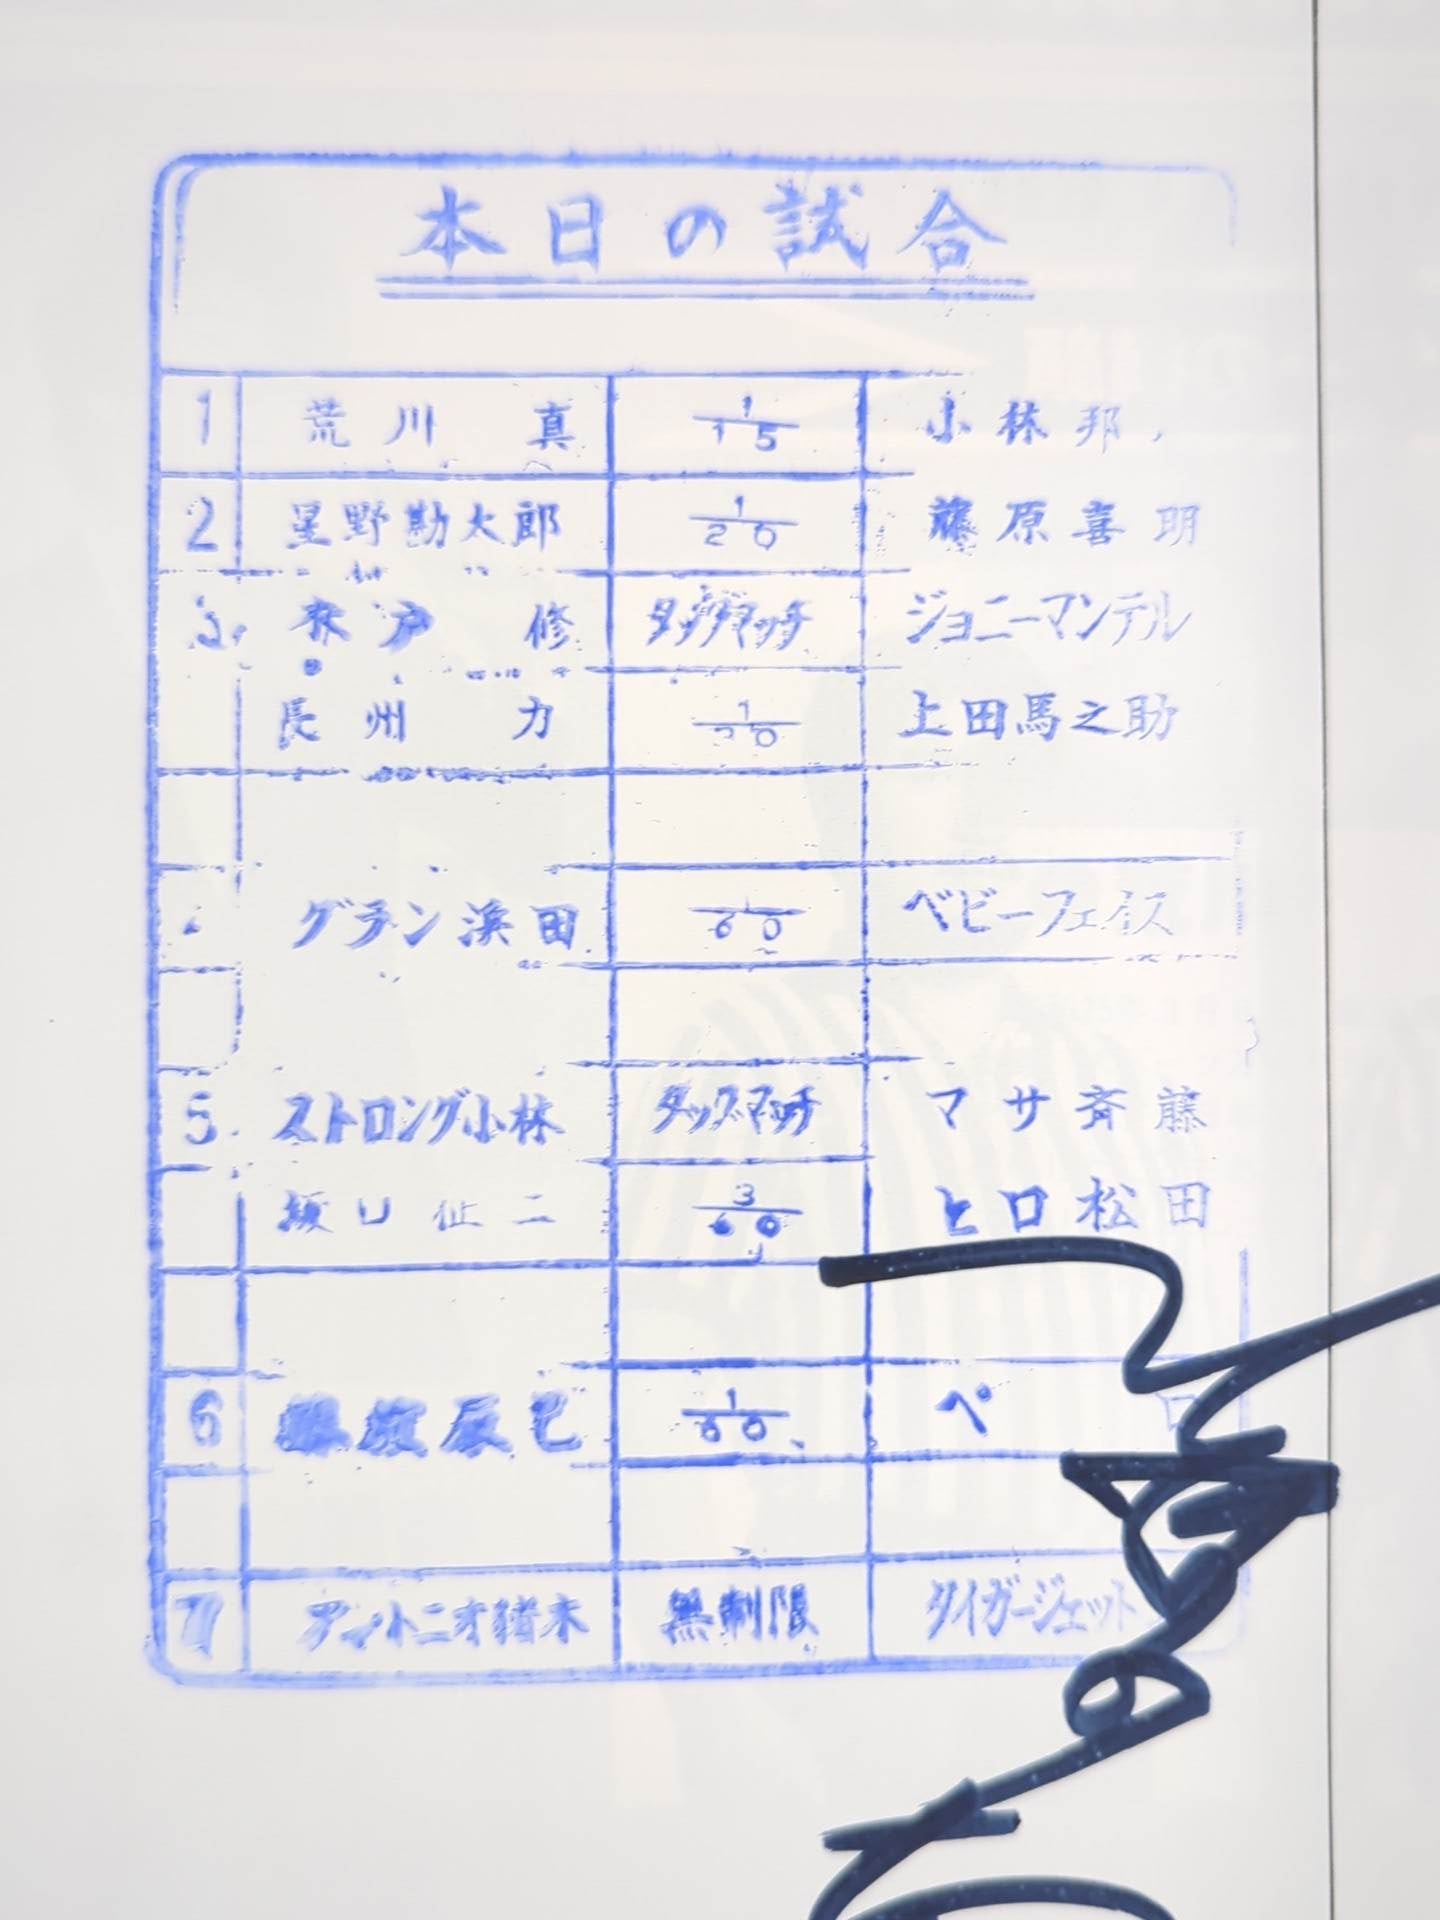 本日の試合
1 荒川 真 1/15 小林邦
2 星野勘太郎 1/20 藤原喜明
木戸 修 タッグマッチ ジョニーマンテル
長州 力 上田馬之助
グラン浜田 1/60 ベビーフェイス
5 ストロング小林 タッグマッチ マサ斉藤
坂口征二 3/60 ヒロ松田
6 辰巳 1/60 ペ ロ
7 アントニオ猪木 無制限 タイガージェット